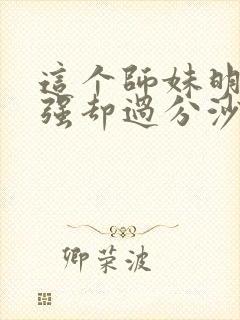 這个師妹明
强却過分沙
卿荣波